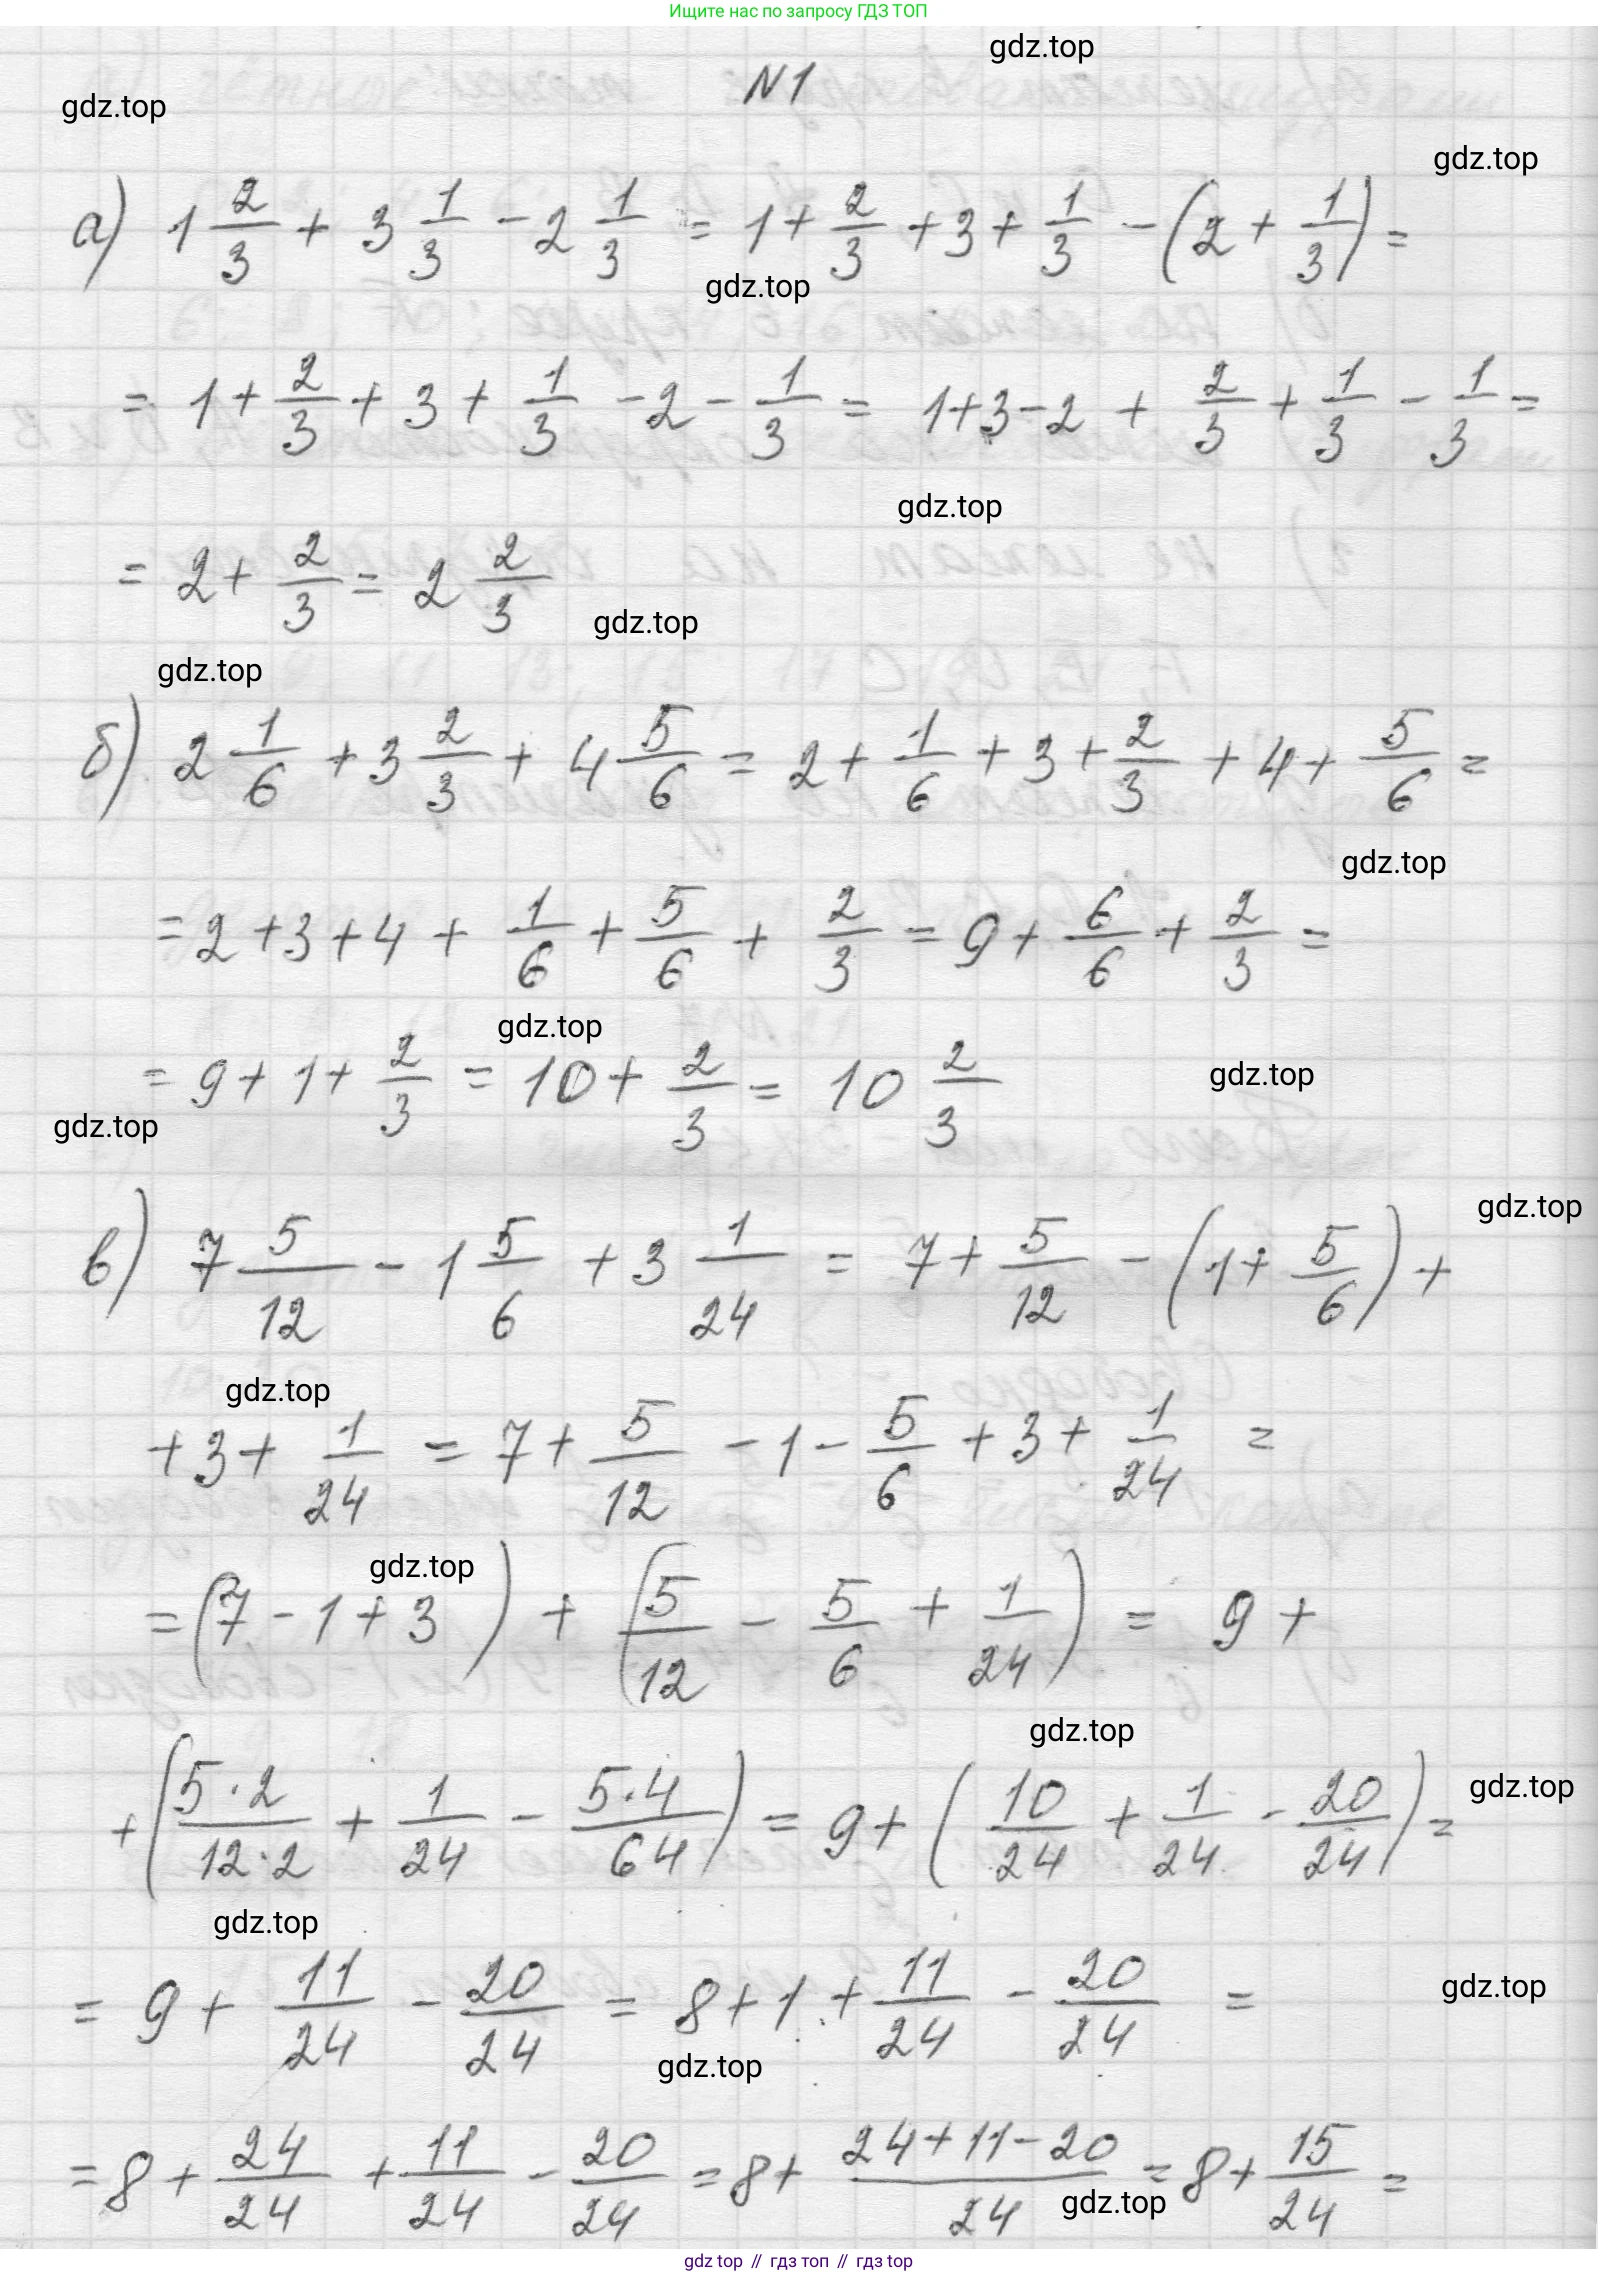 Ищите нас по запросу ГДЗ ТОП
gdz.top
N1
gdz.top
gdz.top
а) 1 2/3 + 3 1/3 - 2 1/3 = 1 + 2/3 + 3 + 1/3 - (2 + 1/3) =
gdz.top
= 1 + 2/3 + 3 + 1/3 - 2 - 1/3 = 1+3-2 + 2/3 + 1/3 - 1/3 =
gdz.top
= 2 + 2/3 = 2 2/3
gdz.top
gdz.top
б) 2 1/6 + 3 2/3 + 4 5/6 = 2 + 1/6 + 3 + 2/3 + 4 + 5/6 =
gdz.top
= 2 + 3 + 4 + 1/6 + 5/6 + 2/3 = 9 + 6/6 + 2/3 =
gdz.top
= 9 + 1 + 2/3 = 10 + 2/3 = 10 2/3
gdz.top
gdz.top
в) 7 5/12 - 1 5/6 + 3 1/24 = 7 + 5/12 - (1 + 5/6) +
gdz.top
gdz.top
+ 3 + 1/24 = 7 + 5/12 - 1 - 5/6 + 3 + 1/24 =
gdz.top
= (7 - 1 + 3) + (5/12 - 5/6 + 1/24) = 9 +
gdz.top
+ (5·2/12·2 + 1/24 - 5·4/64) = 9 + (10/24 + 1/24 - 20/24) =
gdz.top
gdz.top
= 9 + 11/24 - 20/24 = 8 + 1 + 11/24 - 20/24 =
gdz.top
gdz.top
= 8 + 24/24 + 11/24 - 20/24 = 8 + 24+11-20/24 = 8 + 15/24 =
gdz.top
gdz top // гдз топ // gdz top